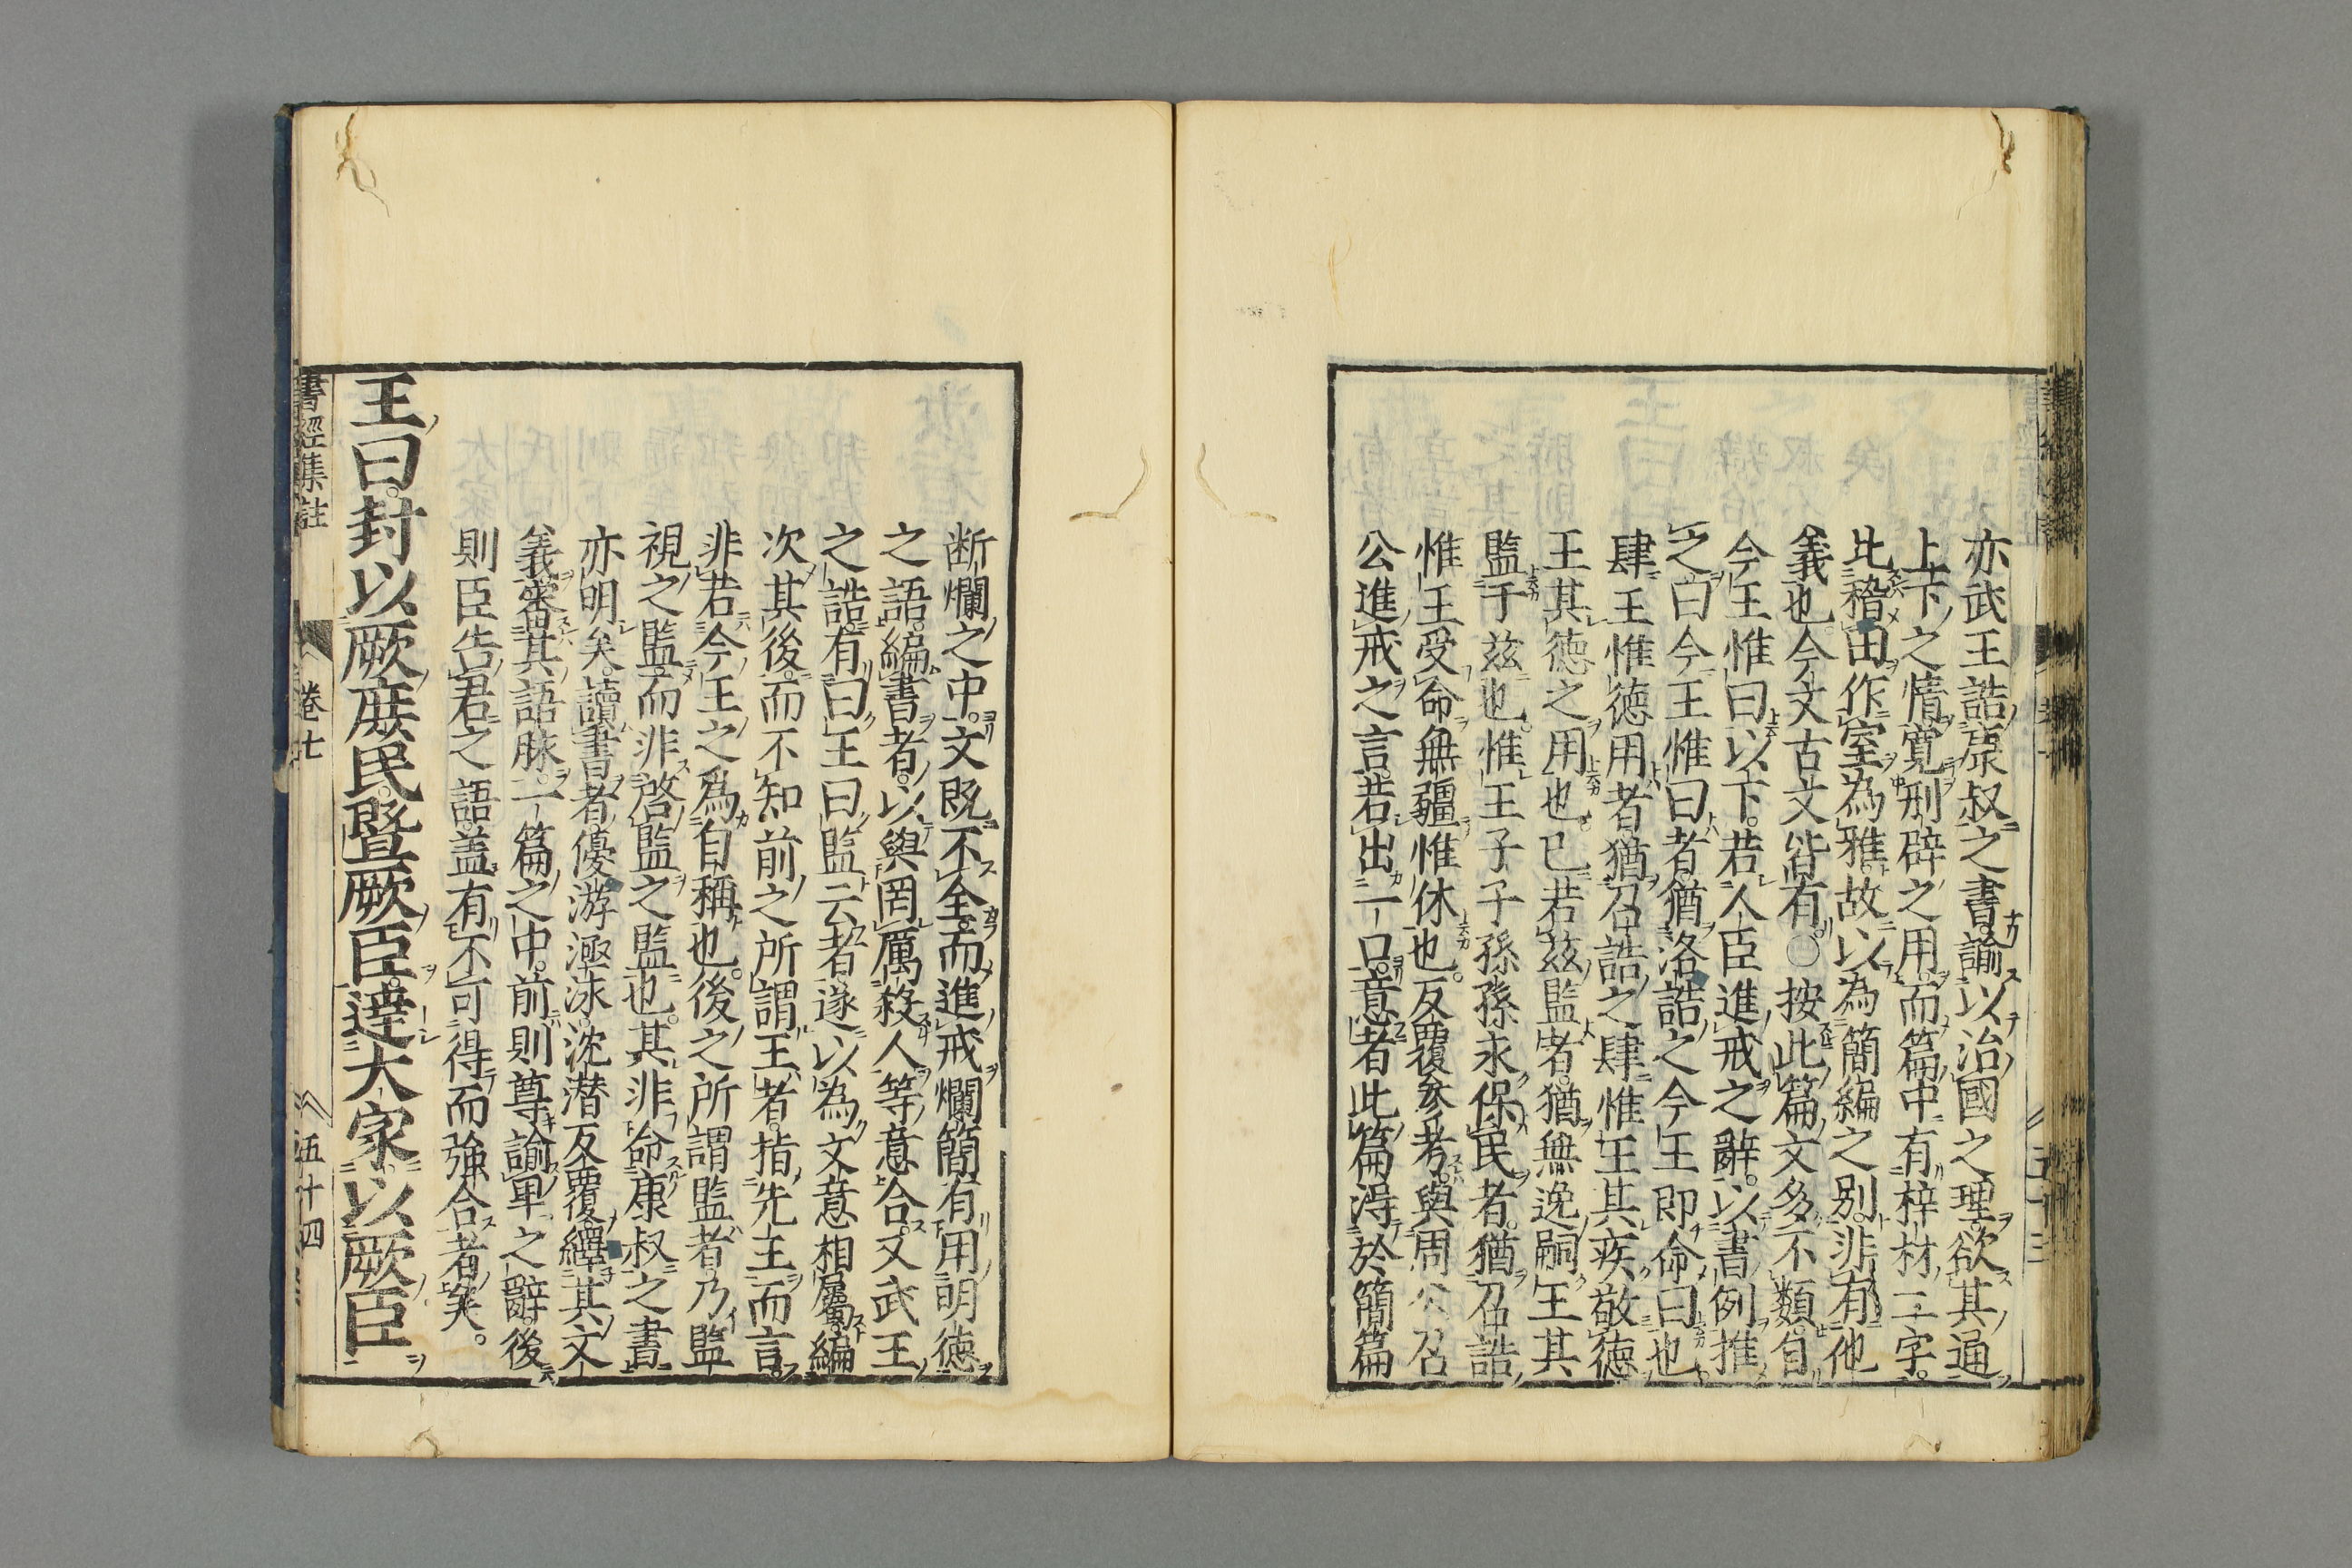 亦武王誥康叔之書諭以治國之理欲其通
上下之情寬刑辟之用而篇中有梓材二字
比稽田作室為雅故以為簡編之別非有他
義也今文古文皆有〇按此篇文多不類自
今王惟曰以下若人臣進戒之辭以書例推
之曰今王惟曰者猶洛誥之今王即命曰也
肆王惟徳用者猶召誥之肆惟王其疾敬徳
王其徳之用也已若茲監者猶無逸嗣王其
監于茲也惟王子子孫孫永保民者猶召誥
惟王受命無疆惟休也反覆參考與周公召
公進戒之言若出一口意者此篇得於簡篇
断爛之中文既不全而進戒爛簡有用明徳
之語編書者以與罔厲殺人等意合又武王
之誥有曰王曰監云者遂以為文意相屬編
次其後而不知前之所謂王者指先王而言
非若今王之爲自稱也後之所謂監者乃監
視之監而非啓監之監也其非命康叔之書
亦明矣讀書者優游涵泳沈潜反覆繹其文
義審其語脉一篇之中前則尊諭卑之辭後
則臣告君之語盖有不可得而強合者矣
王曰封以厥庶民暨厥臣達大家以厥臣
書經集註 卷七 五十四